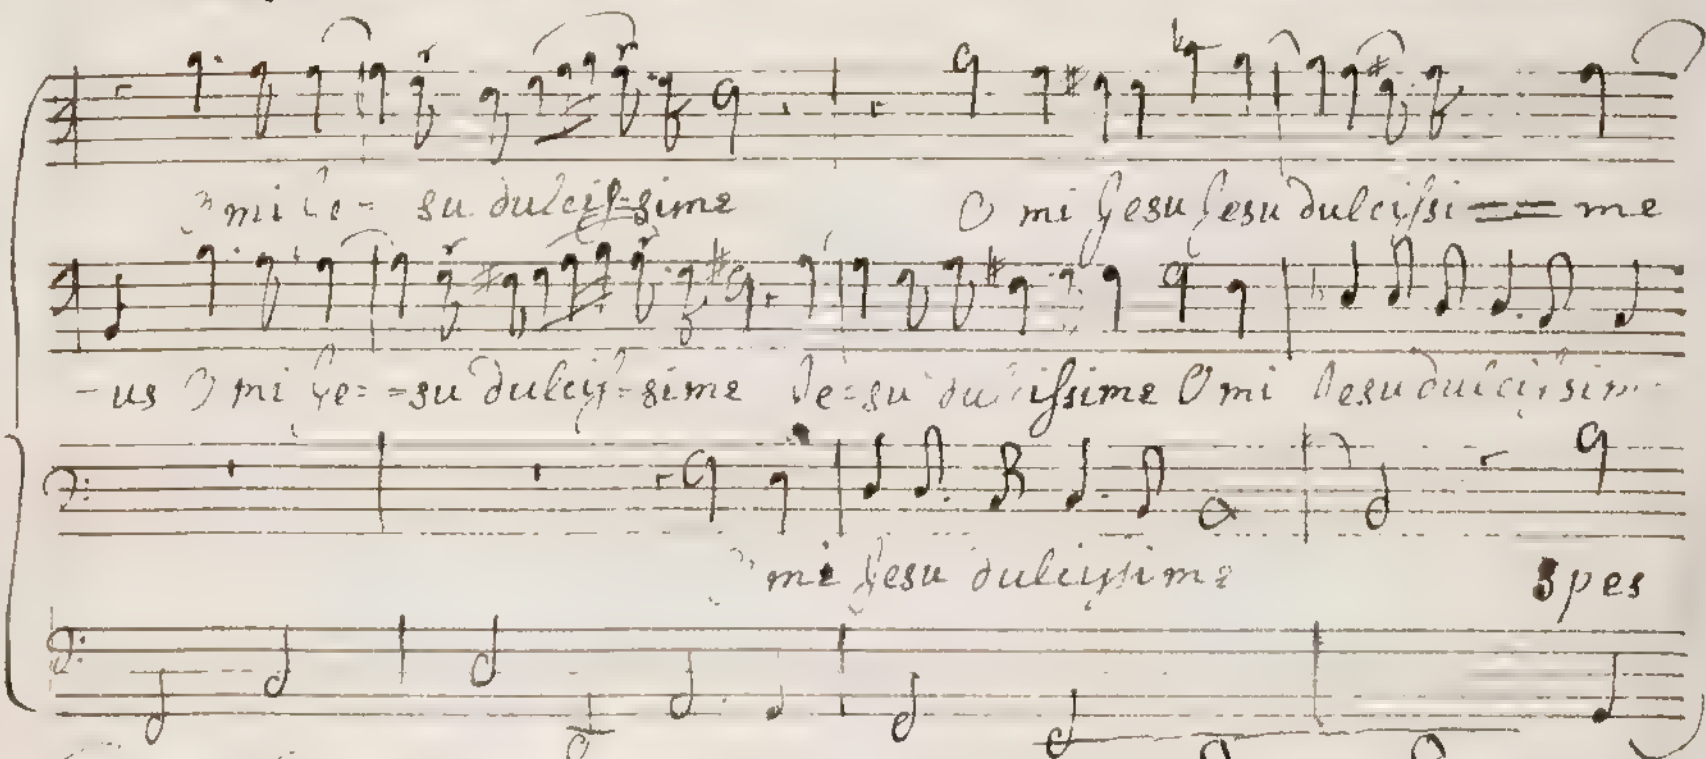 O mi Je= su dulcis=sime O mi Jesu Jesu dulcissi == me
-us O mi Je= =su dulcis=sime Je=su dulcissime O mi Jesu dulcissim
O mi Jesu dulcissime Spes